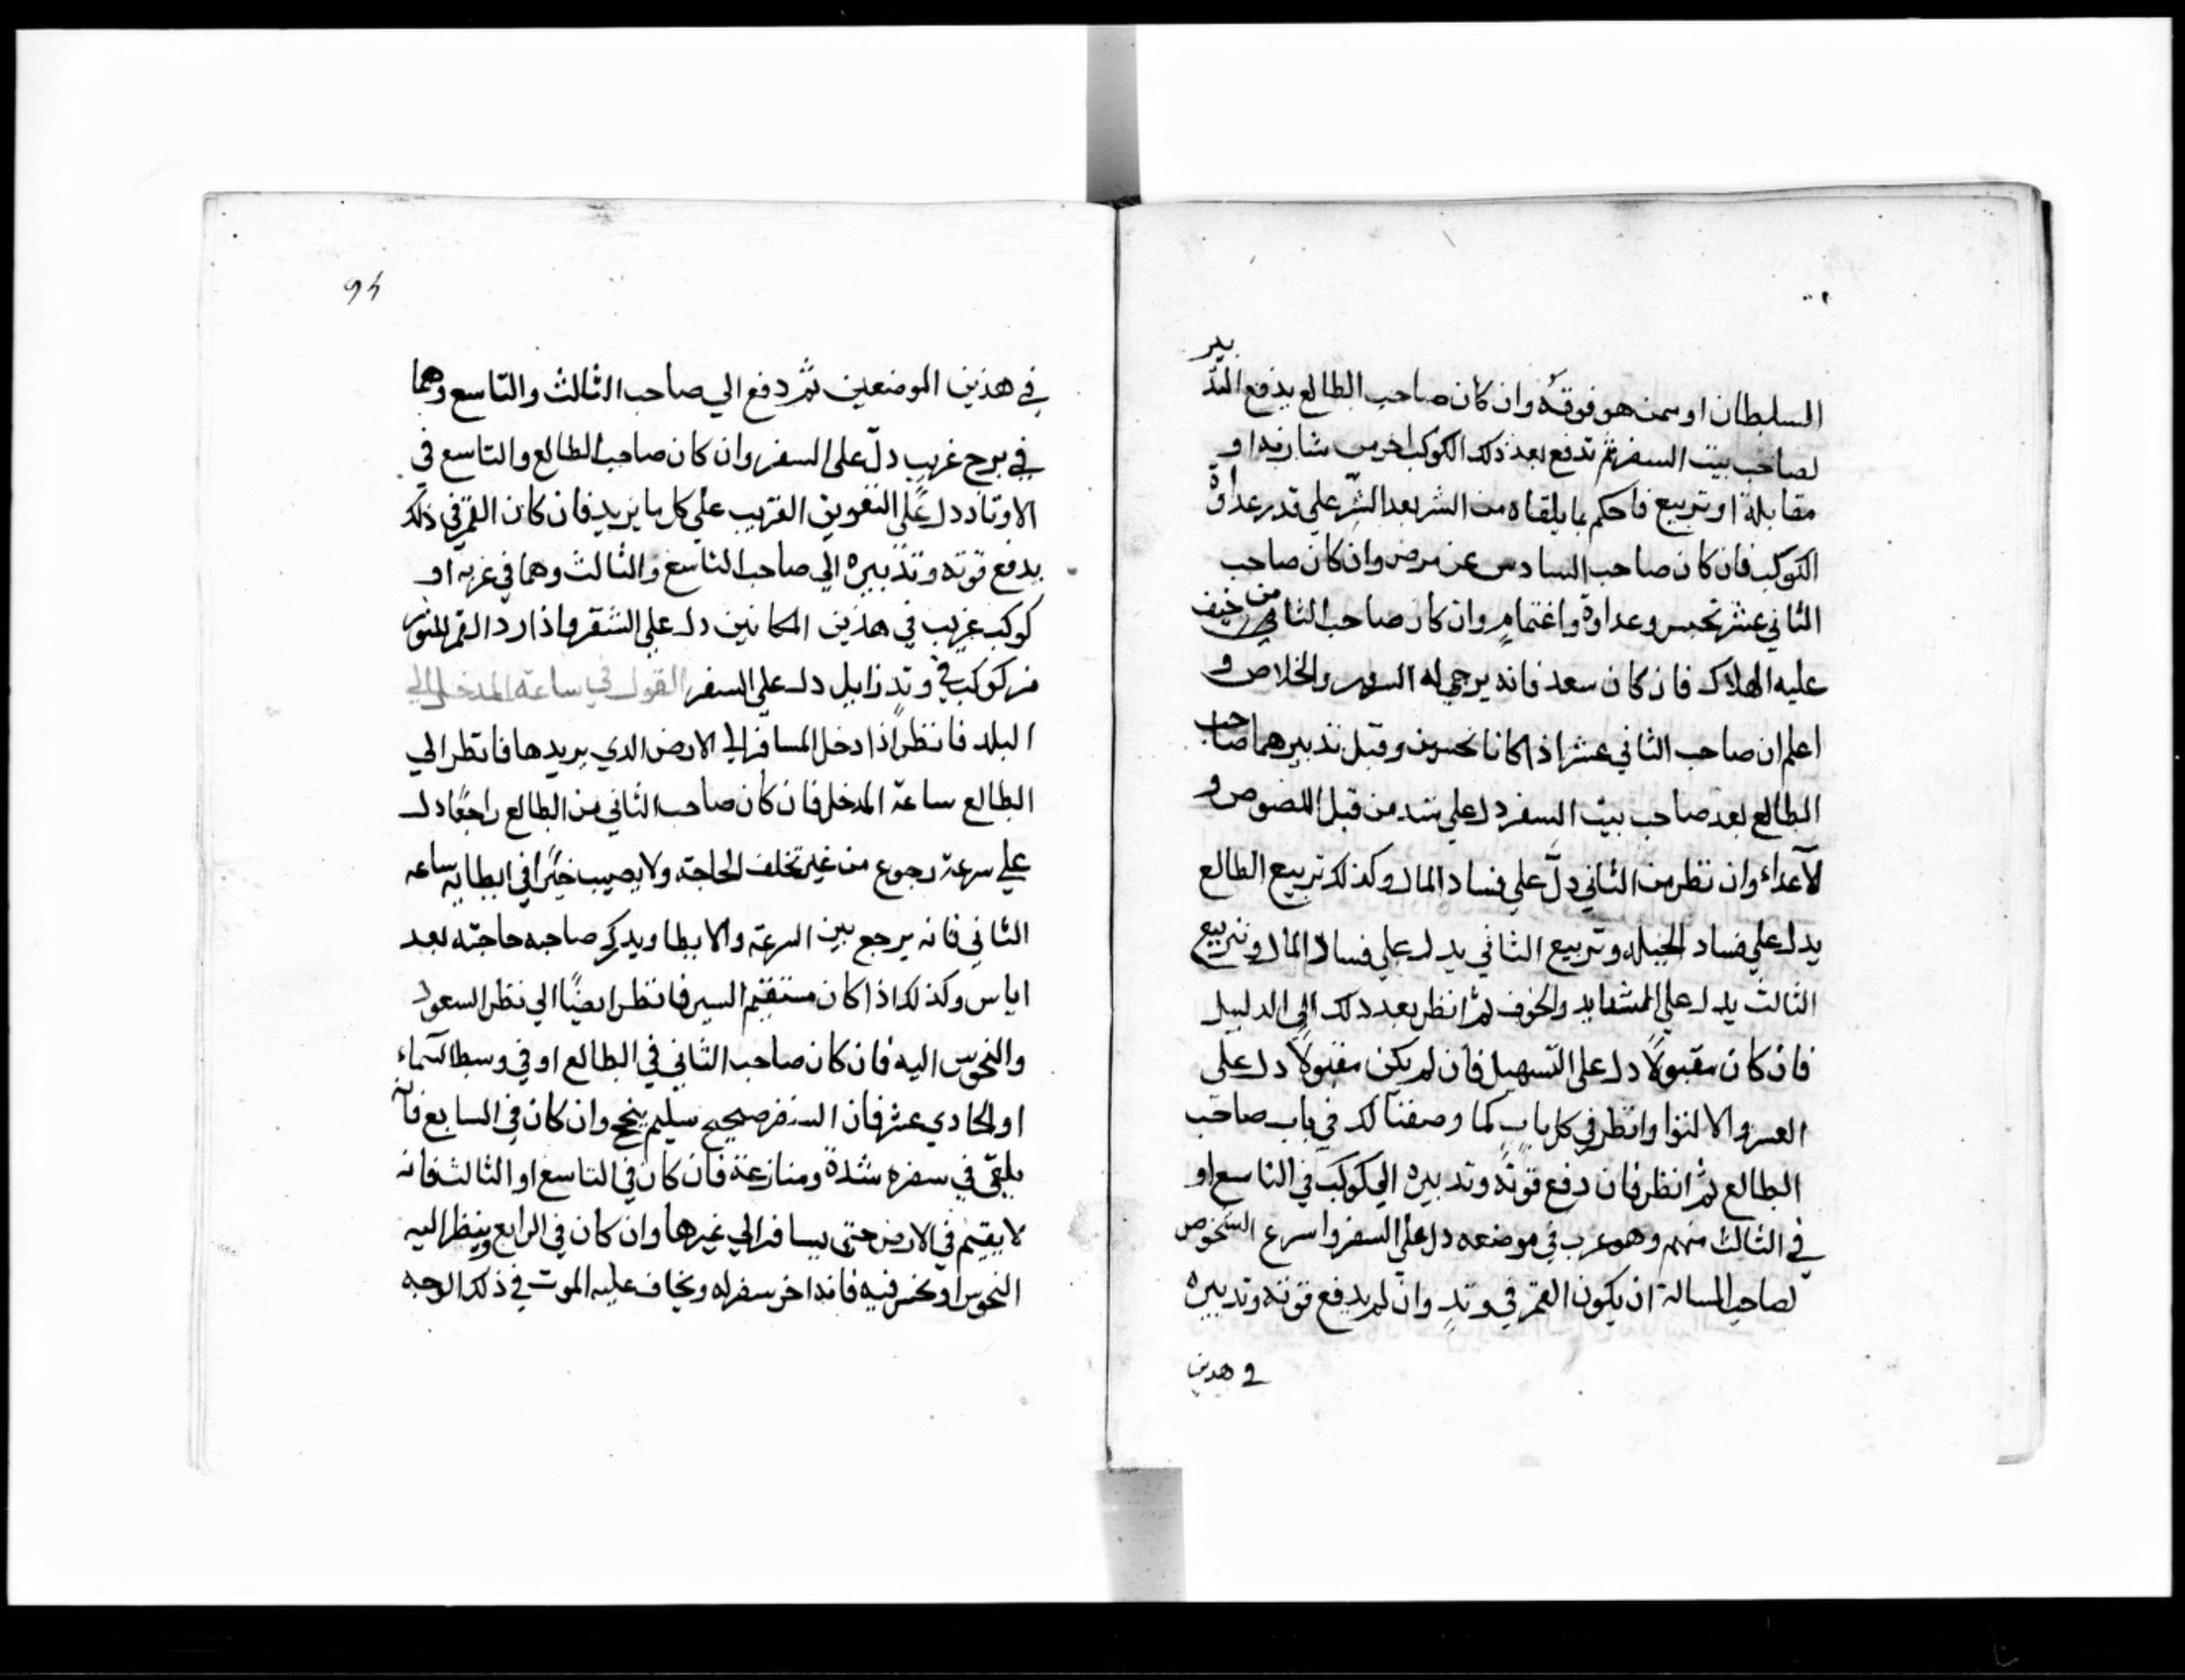 السلطان او ممن هو فوقه وان كان صاحب الطالع يدفع التدبير
لصاحب بيت السفر ثم تدفع بعد ذلك الكوكب اخر من مقارنه او
مقابلة او تربيع فاحكم بما يلقاه من الشر بعد الشر علي قدر عداوة
الكوكب فان كان صاحب السادس عن مرض وان كان صاحب
الثاني عشر تحبس وعداوة واغتمام وان كان صاحب الثامن خيف
عليه الهلاك فان كان سعد فانه يرجي له السرور والخلاص و
اعلم ان صاحب الثاني عشر اذا كانا نحسين وقبل تدبيرهما صاحب
الطالع بعد صاحب بيت السفر دل علي من قبل اللصوص و
لاعداء وان نظر من الثاني دلّ علي فساد المال وكذلك تربيع الطالع
يدل علي فساد الحيله وتربيع الثاني يدل علي فساد المال وتربيع
الثالث يدل علي المشقايد والخوف ثم انظر بعد ذلك الي الدليل
فان كان مقبولًا دل علي التسهيل فان لم يكن مقبولًا دل علي
العسر والالتوا وانظر في كل باب كما وصفنا لك في باب صاحب
الطالع ثم انظر فان دفع قوته وتدبيره الي كوكب في التاسع او
في الثالث منهم وهو غرب في موضعه دل علي السفر واسرع الشخوص
لصاحب المسالة ان يكون القمر في وتدٍ وان لم يدفع قوته وتدبيره
في هدين
94
في هذين الموضعين ثم دفع الي صاحب الثالث والتاسع وهما
في برج غريب دلّ علي السفر وان كان صاحب الطالع والتاسع في
الاوتاد دل علي التعويق القريب علي كل ما يريد فان كان القمر في ذلك
يدفع قوته وتدبيره الي صاحب التاسع والثالث وهما في غربه او
كوكب غريب في هذين المكانين دل علي السفر واذا رد القمر النور
من كوكب في وتدٍ زايل دل علي السفر القول في ساعة المدخل الي
البلد فانظر اذا دخل المسافر الي الارض الدي يريدها فانظر الي
الطالع ساعة المدخل فان كان صاحب الثاني من الطالع راجعًا دل
علي سرعة رجوع من غير تخلف الحاجة ولا يصيب خيرًا في ابطايه ساعه
الثاني فانه يرجع بين السرعة والابطا ويدرك صاحبه حاجته بعد
اياس وكذلك اذا كان مستقيم السير فانظر ايضًا الي نظر السعود
والنحوس اليه فان كان صاحب الثاني في الطالع او في وسط السماء
او الحادي عشر فان السفر صحيح سليم ينجح وان كان في السابع فانه
يلقي في سفره شدة ومنازعة فان كان في التاسع او الثالث فانه
لا يقيم في الارض حتي يسافر الي غيرها وان كان في الرابع وينظر اليه
النحوس او نحس فيه فانه اخر سفر له ويخاف عليه الموت في ذلك الوجه